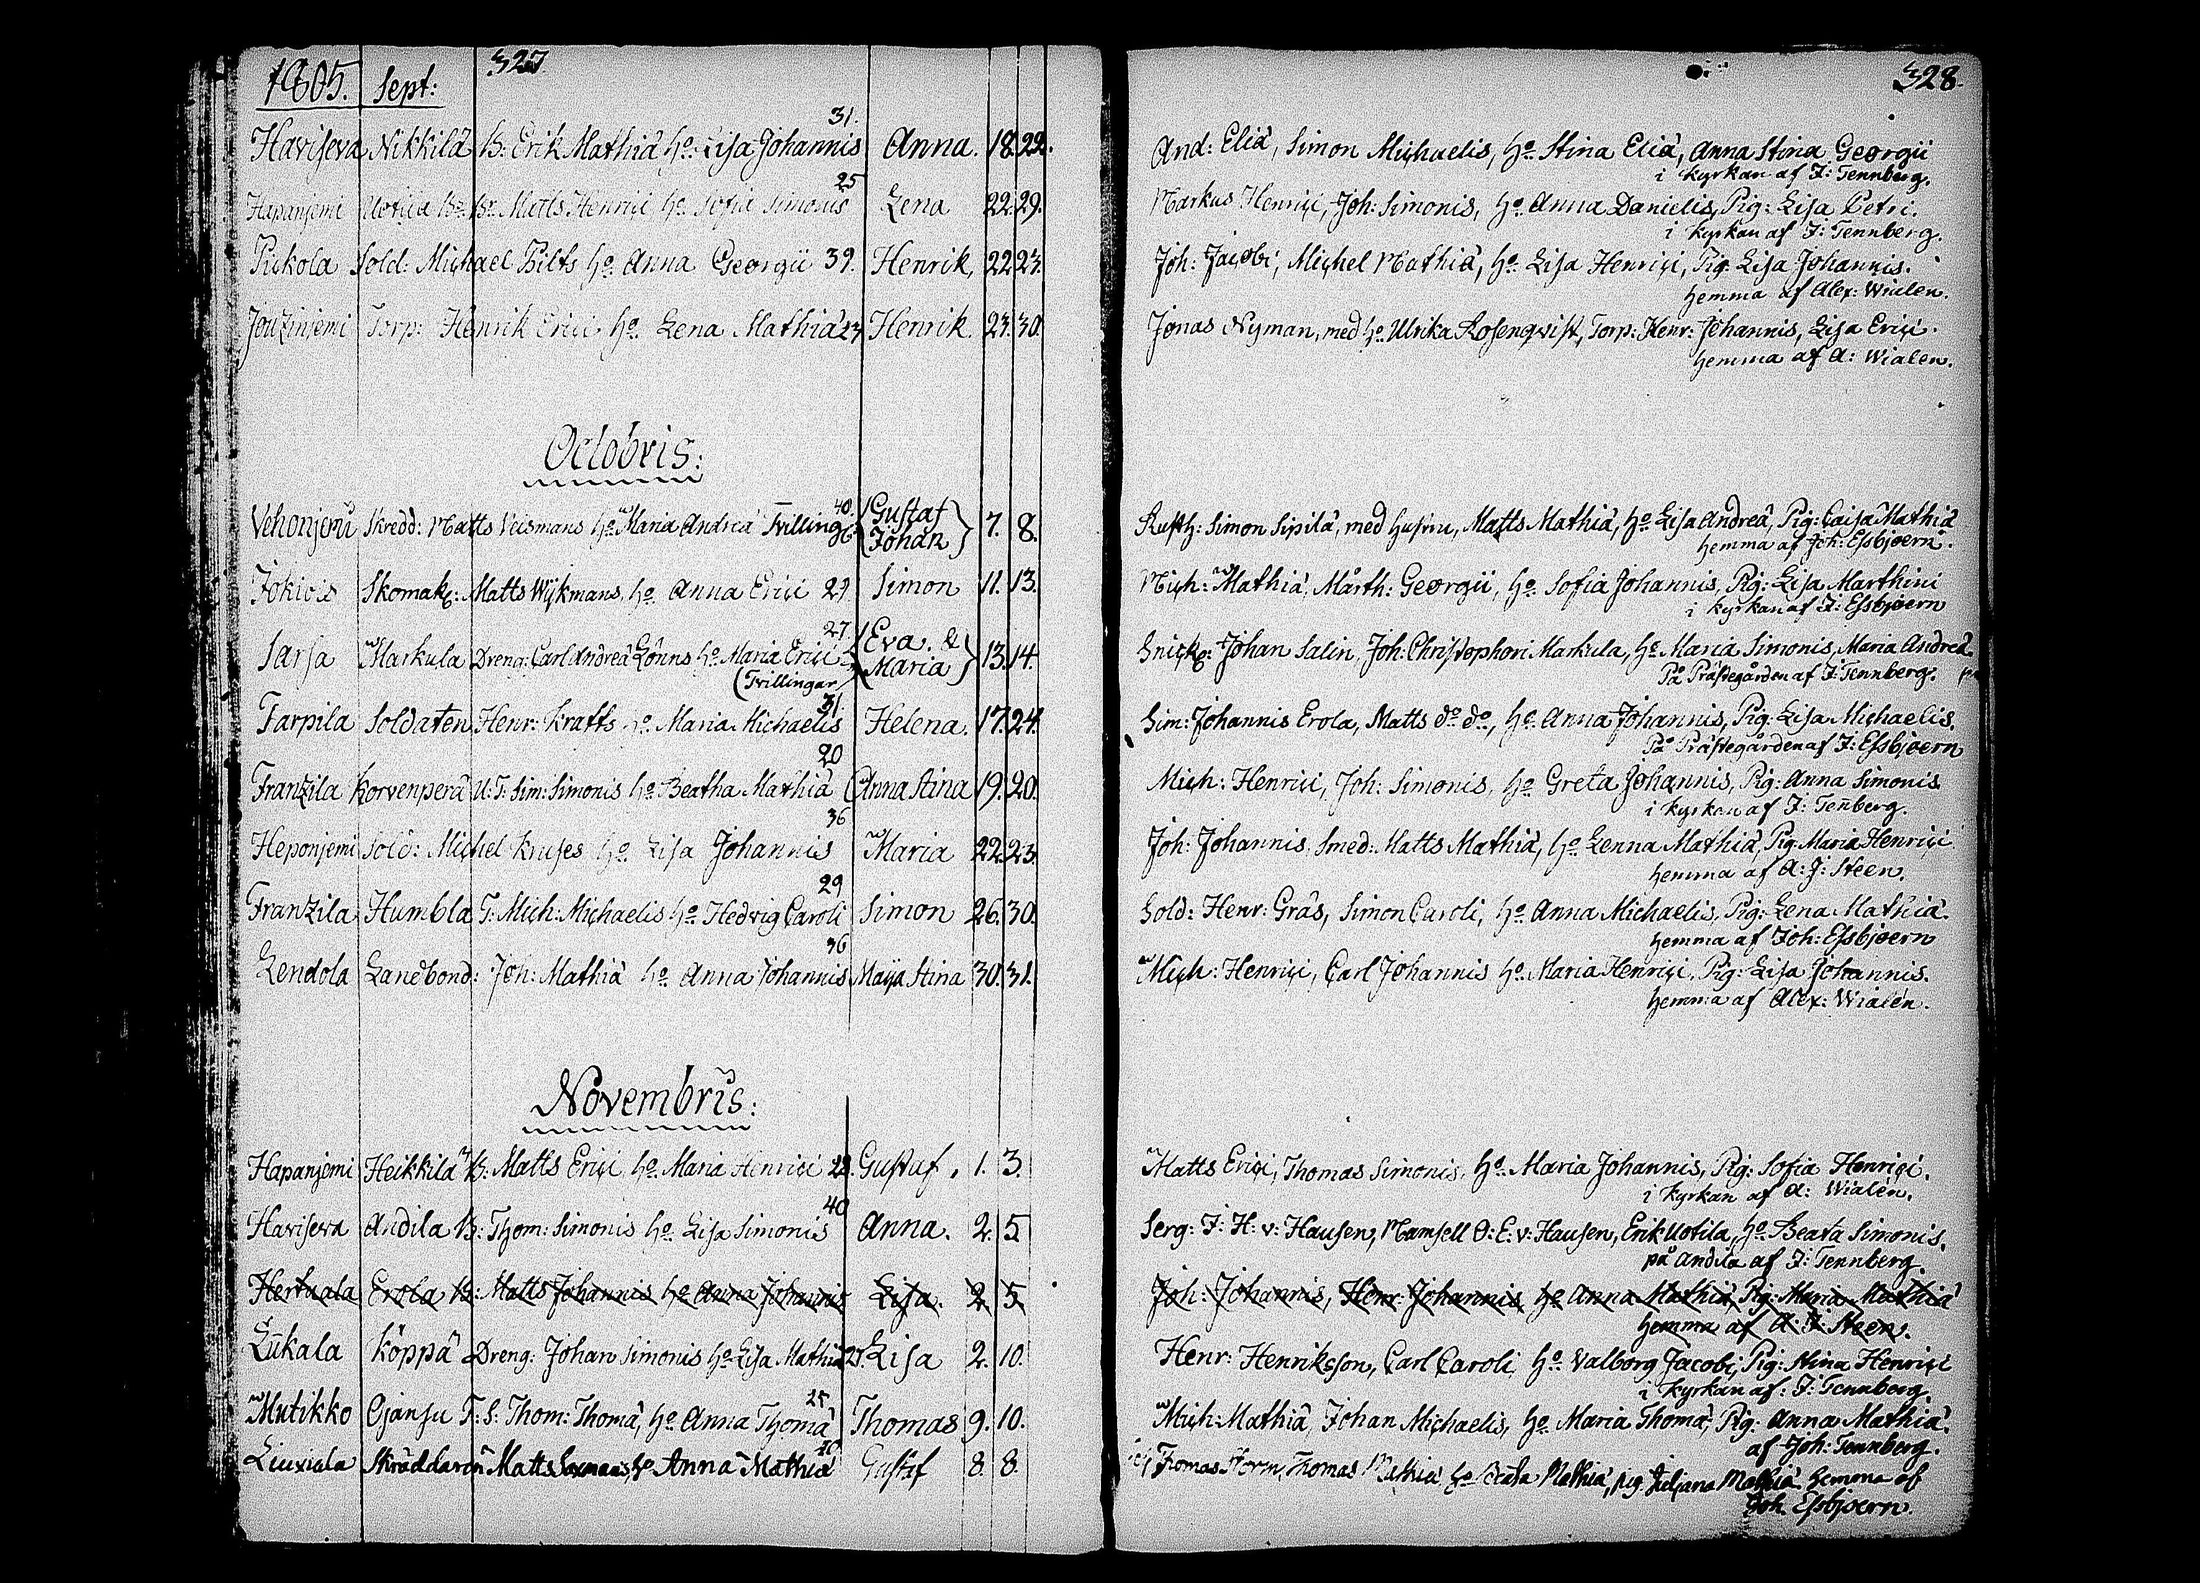 1805. Sept: 327
31.
Haviseva Nikkilä B: Erik Mathiä Ho: Lisa Johannis Anna. 18. 22.
25
Hapanjemi Uotila Bo: Br: Matts Henrici Ho: Sofia Simonis Lena 22. 29.
Pickola Sold: Michael Bilts Ho: Anna Georgii 39. Henrik. 22. 23.
Jouzinjemi Torp: Henrik Erici Ho: Lena Mathiä 23 Henrik. 23. 30.
Octobris:
40.
Vehonjemi Skredd: Matts Veismans Ho: Maria Andreä Tvillingar {Gustaf Johan} 7. 8.
Jokiois Skomak: Matts Wijkmans, Ho: Anna Erici 29. Simon 11. 13.
27.
Sarsa Markula Dreng: Carl Andreä Lönns Ho: Maria Erici {Eva. & Maria} 13. 14.
(Tvillingar)
31
Tarpila Soldaten Henr: Krafts Ho: Maria Michaelis Helena. 17. 24.
20
Franzila Korvenperä U: T: Sim: Simonis Ho: Beatha Mathiä Anna Stina 19. 20.
36
Heponjemi Sold: Michel Kruses Ho: Lisa Johannis Maria 22. 23.
29
Franzila Humbla T: Mich: Michaelis Ho: Hedvig Caroli Simon 26. 30.
36
Lendola Landbond: Joh: Mathiä Ho: Anna Johannis Maija Stina 30. 31.
Novembris:
Hapanjemi Heikkilä B: Matts Erici, Ho: Maria Henrici 28. Gustaf. 1. 3.
40
Haviseva Andila B: Thom: Simonis Ho: Lisa Simonis Anna. 2. 5.
Hertuala Erola B: Matts Johannis Ho: Anna Johannis Lisa. 2. 5.
Liukala Köppä Dreng: Johan Simonis Ho: Lisa Mathiä Lisa 2. 10.
25.
Mutikko Ojansu T: S: Thom: Thomä, Ho: Anna Thomä Thomas 9. 10.
40
Liuxiala Skräddaren Matts Ho Anna Mathiä Gustaf 8. 8.
328.
And: Eliä, Simon Michaelis, Ho: Stina Eliä, Anna Stina Georgii
i kyrkan af J: Tennberg.
Markus Henrici, Joh: Simonis, Ho: Anna Danielis, Pig: Lisa Petri.
i kyrkan af J: Tennberg.
Joh: Jacobi, Michel Mathiä, Ho: Lisa Henrici, Pig: Lisa Johannis.
hemma af Alex: Wialen.
Jonas Nyman, med Ho: Ulrika Rosenqvist, Torp: Henr: Johannis, Lisa Erici.
hemma af A: Wialen.
Rusth: Simon Sipilä, med hustru, Matts Mathiä, Ho: Lisa Andreä, Pig: Caisa Mathiä
hemma af Joh: Essbjoern.
Mich: Mathiä, Mårth: Georgii, Ho: Sofia Johannis, Pig: Lisa Marthini
i kyrkan af J: Essbjoern
Snick: Johan Salin, Joh: Christophori Markula, Ho: Maria Simonis, Maria Andreä
På Prästegården af J: Tennberg.
Sim: Johannis Erola, Matts do do, Ho: Anna Johannis, Pig: Lisa Michaelis.
På Prästegården af J: Essbjoern
Mich: Henrici, Joh: Simonis, Ho: Greta Johannis, Pig: Anna Simonis
i kyrkan af J: Tenberg.
Joh: Johannis, Smed: Matts Mathiä, Ho: Lenna Mathiä, Pig: Maria Henrici
hemma af A: J: Steen.
Sold: Henr: Gräs, Simon Caroli, Ho: Anna Michaelis, Pig: Lena Mathiä.
hemma af Joh: Essbjoern
Mich: Henrici, Carl Johannis Ho: Maria Henrici, Pig: Lisa Johannis.
hemma af Alex: Wialén.
Matts Erici, Thomas Simonis, Ho: Maria Johannis, Pig: Sofia Henrici.
i kyrkan af A: Wialén.
Serg: J: H: v: Hausen, Mamsell O: E: v: Hausen, Erik Uotila, Ho: Beata Simonis.
på Andila af J: Tennberg.
Joh: Johannis, Henr: Johannis Ho: Anna Mathiä, Pig: Maria Mathiä
hemma af A: J: Steen.
Henr: Henriksson, Carl Caroli Ho: Valborg Jacobi, Pig: Stina Henrici
i kyrkan af: J: Tennberg.
Mich: Mathiä, Johan Michaelis, Ho: Maria Thomä, Pig: Anna Mathiä.
af Joh: Tennberg.
Thomas Horn, Thomas Mathiä, Ho: Beata Mathiä, pig. Juliana Mathiä hemma af
Joh. Essbjoern.